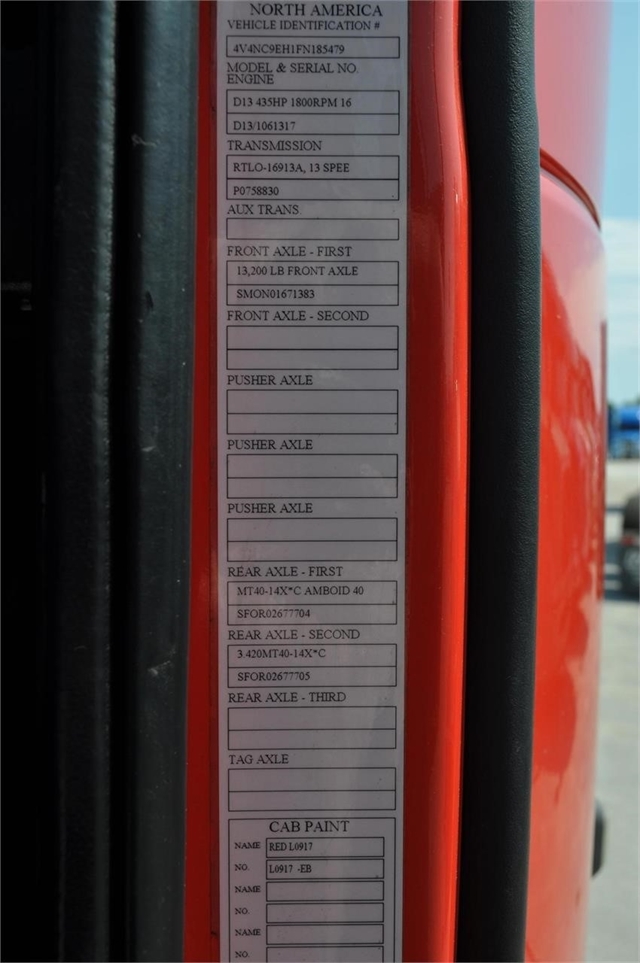 NORTH AMERICA
VEHICLE IDENTIFICATION #
4V4NC9EH1FN185479
MODEL & SERIAL NO.
ENGINE
D13 435HP 1800RPM 16
D13/1061317
TRANSMISSION
RTLO-16913A, 13 SPEE
P0758830
AUX TRANS.
FRONT AXLE - FIRST
13,200 LB FRONT AXLE
SMON01671383
FRONT AXLE - SECOND
PUSHER AXLE
PUSHER AXLE
PUSHER AXLE
REAR AXLE - FIRST
MT40-14X*C AMBOID 40
SFOR02677704
REAR AXLE - SECOND
3.420MT40-14X*C
SFOR02677705
REAR AXLE - THIRD
TAG AXLE
CAB PAINT
NAME RED L0917
NO. L0917 -EB
NAME
NO.
NAME
NO.